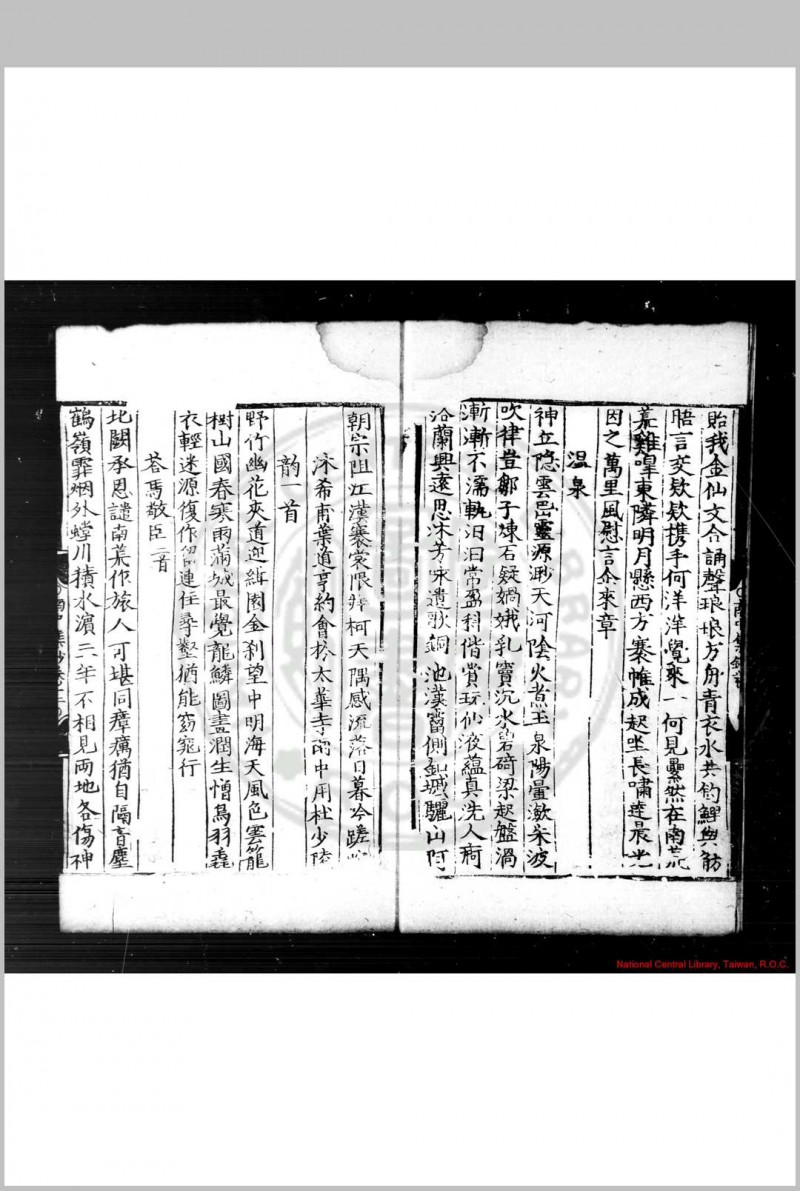 貽我金仙文合誦聲琅琅方舟青衣水共釣鯉與魴
晤言交欵欵携手何洋洋覺來一何見纍然在南荒
荒雞嘷東隣明月懸西方褰帷成起坐長嘯達晨光
因之萬里風慰言企來章
温泉
神丘隐雲嵒靈源渺天河陰火煮玉泉陽暈漱朱波
吹律豈鄒子煉石疑媧娥乳竇沉水碧碕梁起盤渦
漸漸不濡軌汩汩常盈科偕賞玩仙液蘊真洗人痾
浴蘭興遠思沐芳咏遺歌銅池漢甯側釦城驪山阿
朝宗阻江漢褰裳限牂柯天隅感流落日暮吟蹉
沐希甫葉道亨約會於太華寺雨中用杜少陵
韵一首
野竹幽花夹道迎紺園金刹望中明海天風色雲籠
樹山國春寒雨滿城最覺龍鱗圖畫潤生憎鳥羽毳
衣輕迷源復作留連住尋壑猶能窈窕行
荅馬敬臣一首
北闕承恩譴南荒作旅人可堪同瘴癘猶自隔音塵
鶴嶺霏烟外螳川積水濵三年不相見兩地各傷神
National Central Library, Taiwan, R.O.C.